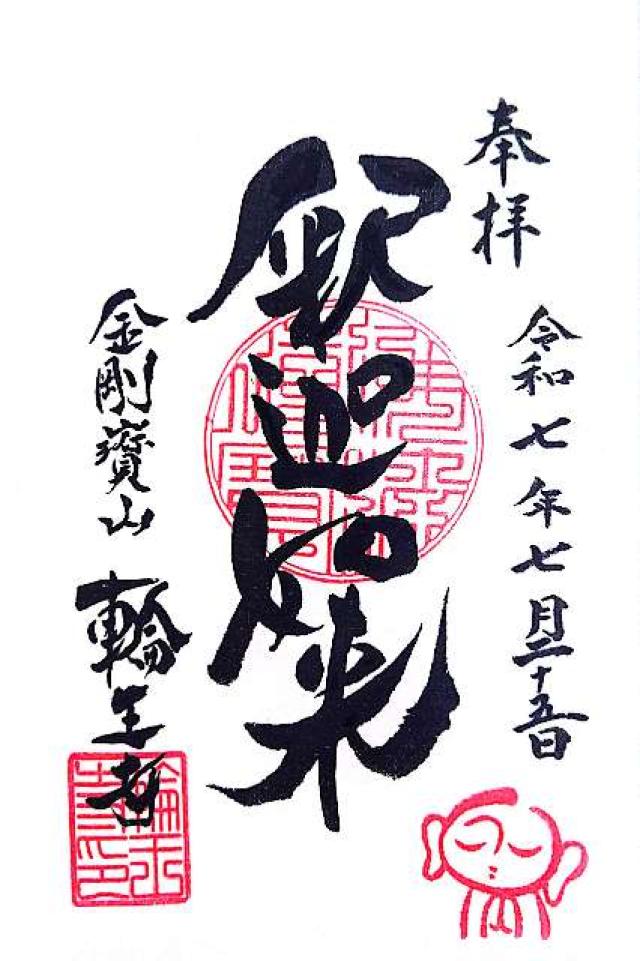 奉拝
令和七年七月二十五日
釈迦如来
金剛寳山
輪王寺